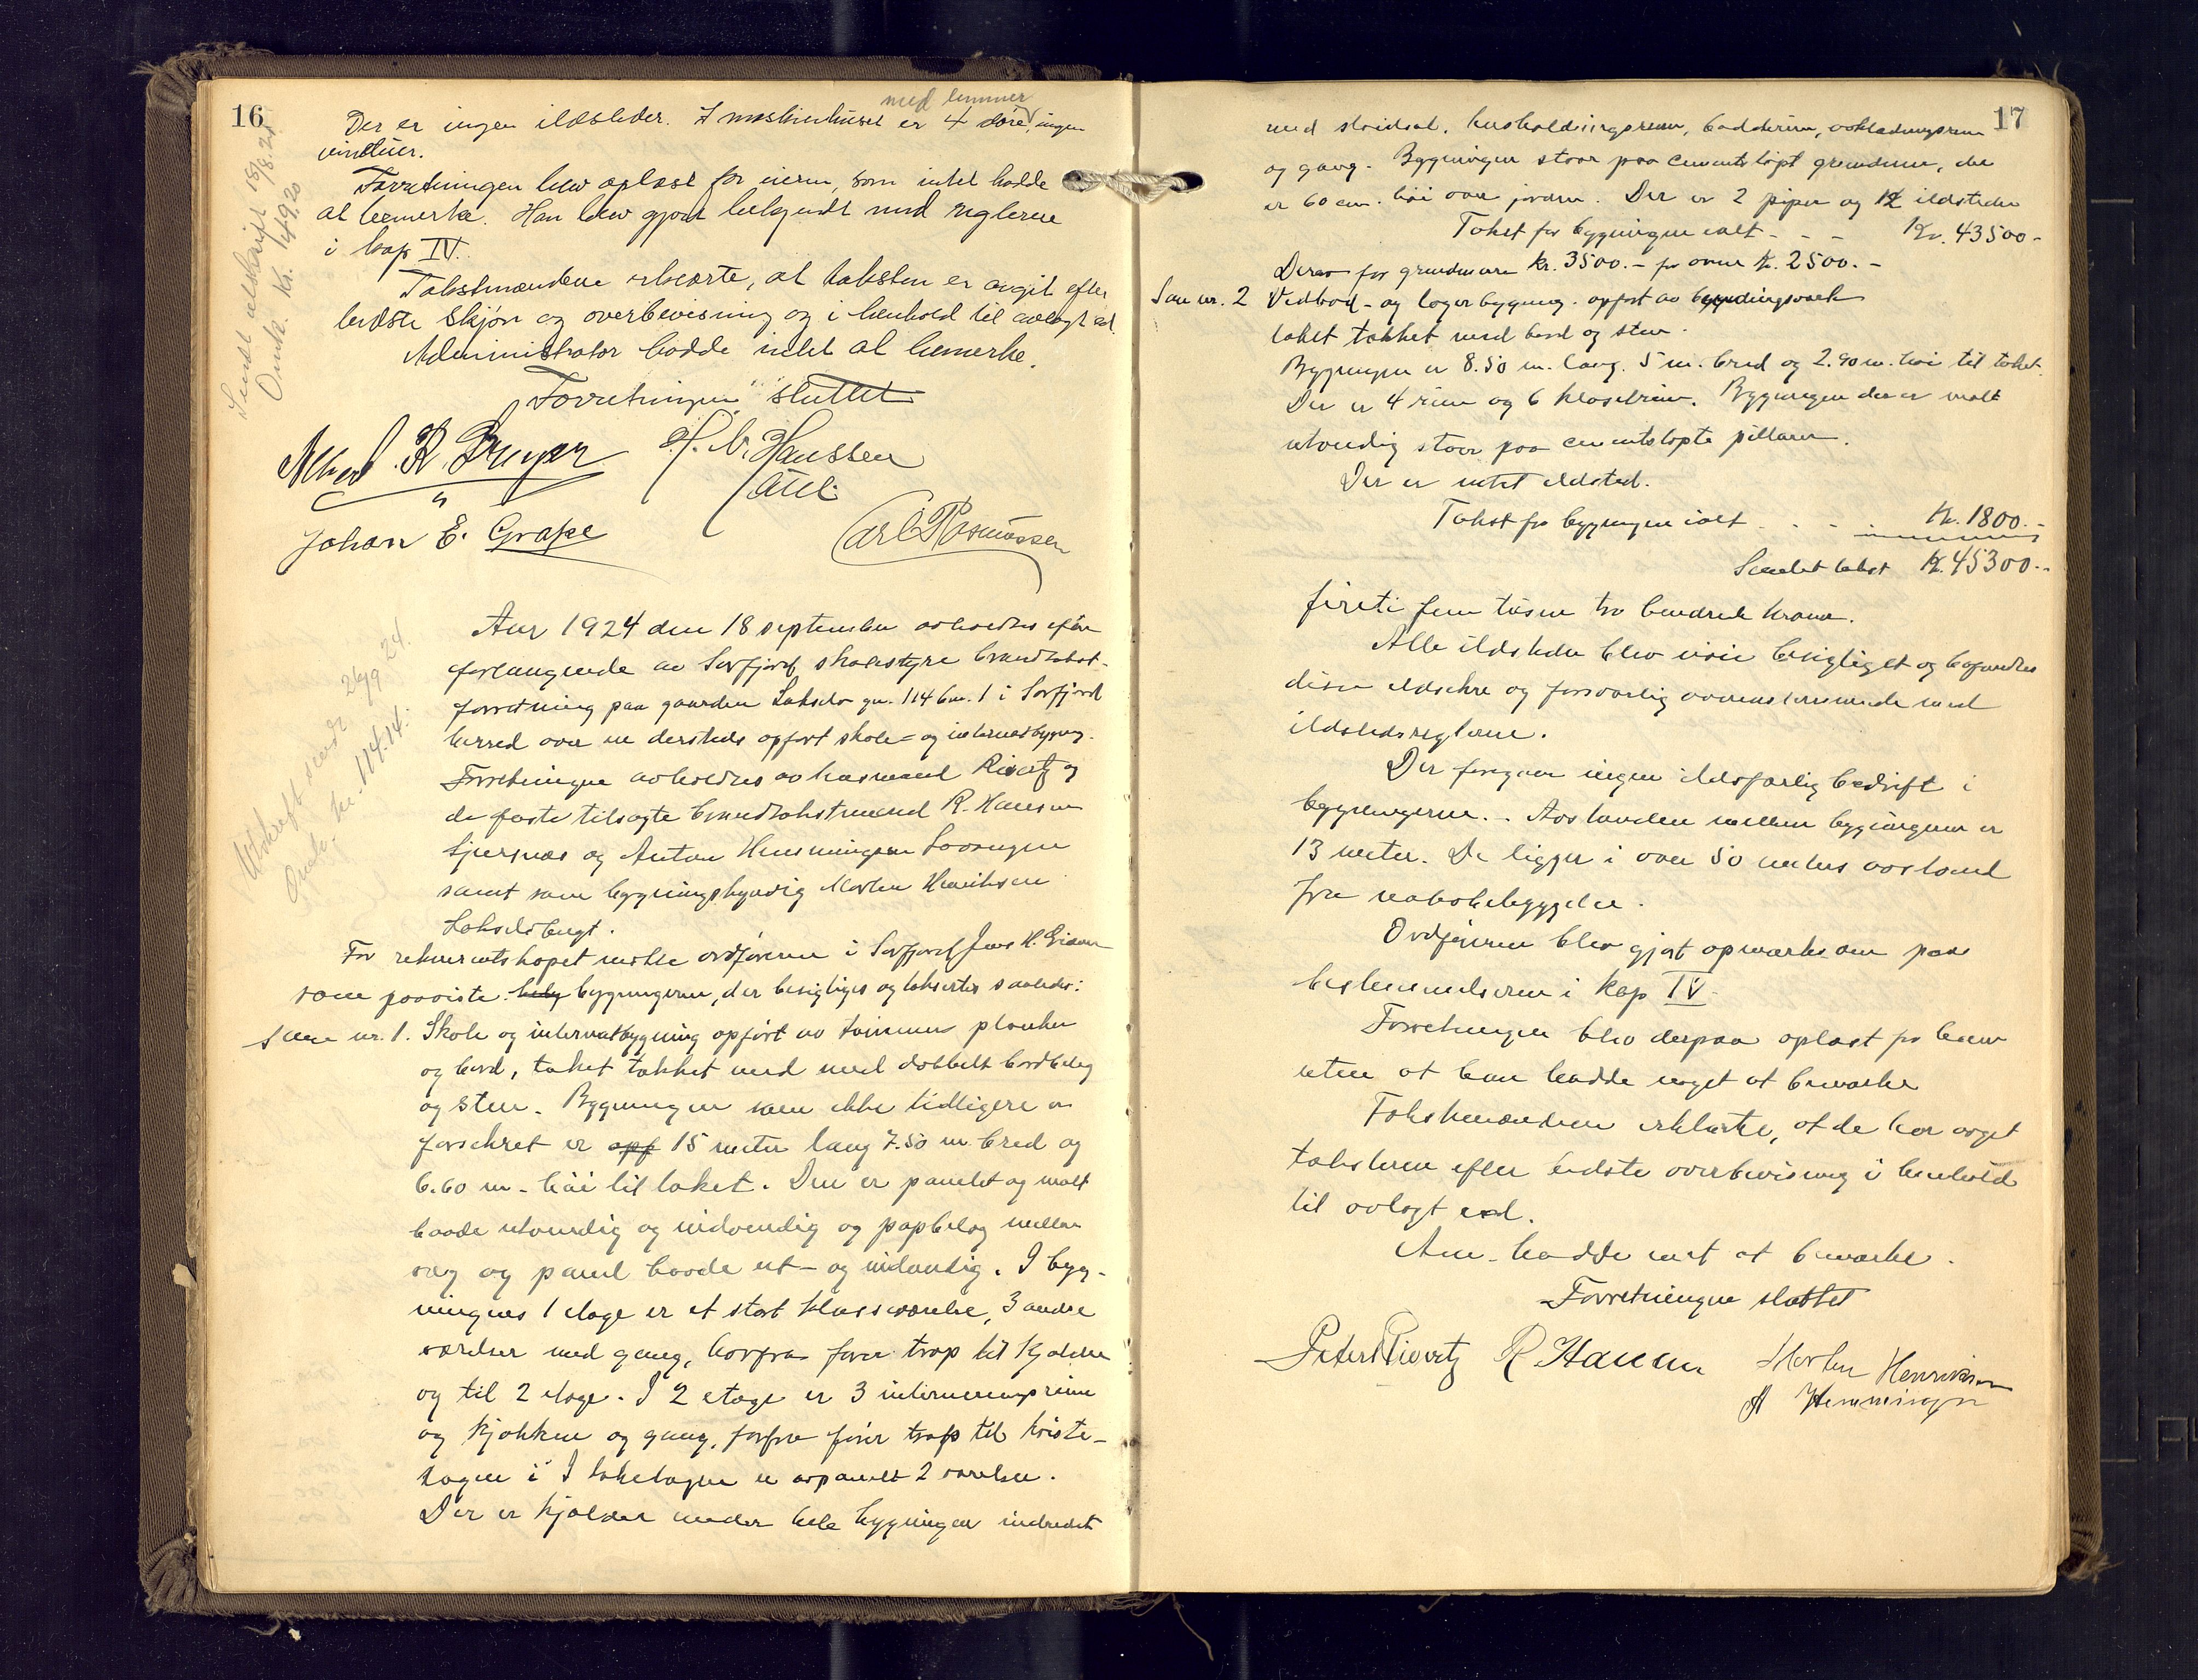 16
med lemmer
Der er ingen ildsteder. I maskinhuset er 4 døre, ingen
vinduer.
Forretningen blev oplæst for eieren, som intet hadde
at bemerke. Han blev gjort bekjendt med reglerne
i kap IV.
Takstmændene erklærte, at taksten er avgit efter
bedste skjøn og overbevisning og i henhold til avlagt ed.
Administrator hadde intet at bemerke.
Forretningen sluttet
H. Hanssen
Johan E. Grape
Carl Rasmussen
Sendt utskrift 18/8.24
Omk. Kr. 149.20
Aar 1924 den 18 september avholdtes efter
forlangende av Sørfjord skolestyre brandtakst-
forretning paa gaarden Lakselv gn. 114 bn. 1 i Sørfjord
herred over en dersteds opført skole- og internatbygng.
Forretningen avholdtes av lensmand Rivertz og
de faste tilsagte brandtakstmænd R. Hansen
Sjursnæs og Anton Hemmingsen
samt som bygningskyndig Morten Henriksen
Lakselvbugt.
Utskrift sendt 26/9 24.
Omk. kr. 114.14.
For rekvirentskapet møtte ordføreren i Sørfjord Jens H.
som paaviste bygningerne, der besigtiges og taksertes saaledes:
Litra nr. 1. Skole og internatbygning opført av tømmer planker
og bord, taket tækket med med dobbelt bordbelæg
og sten. Bygningen som ikke tidligere er
forsikret er opf 15 meter lang 7.50 m. bred og
6.60 m. høi til taket. Den er panelet og malt
baade utvendig og indvendig og papbelag mellem
væg og panel baade ut- og indvendig. I byg-
ningens 1 etage er et stort klasseværelse, 3 andre
værelser med gang, hvorfra fører trap til kjælder
og til 2 etage. I 2 etage er 3 interneringsrum
og kjøkken og gang, forfra fører trap til kviste-
tagen i I taketagen er avpanelt 2 værelser.
Der er kjælder under hele bygningen indredet
17
med sløidsal, husholdningsrum, badderum, avklædningsrum
og gang. Bygningen staar paa cementstøpt grundmur, der
er 60 cm. høi over jorden. Der er 2 piper og 12 ildsteder
Takst for bygningen ialt - - - Kr. 43500 -
Derav for grundmuren kr. 3500.- for ovner kr. 2500.-
nr. 2 Vedbod- og lagerbygning. opført av bygningsværk
taket tækket med bord og sten.
Bygningen er 8.50 m. lang. 5 m. bred og 2.90 m. høi til taket.
Der er 4 rum og 6 klosetrum. Bygningen der er malt
utvendig staar paa cementstøpte pillarer.
Der er intet ildsted.
Takst for bygningen ialt - - - Kr. 1800.-
Samlet takst Kr. 45300.-
firti fem tusen tre hundrede kroner.
Alle ildsteder blev nøie besigtiget og befandtes
disse ildsikre og forsvarlig overensstemmende med
ildstedsreglerne.
Der foregaar ingen ildsfarlig bedrift i
bygningerne. Avstanden mellem bygningene er
13 meter. De ligger i over 50 meters avstand
fra nabobebyggelse.
Ordføreren blev gjort opmerksom paa
bestemmelserne i kap IV.
Forretningen blev derpaa oplæst for ham
uten at han hadde noget at bemerke
Takstmændene erklærte, at de har avget
taksterne efter bedste overbevisning i henhold
til avlagt ed.
Adm. hadde intet at bemerke.
Forretningen sluttet
Peter Rivertz R Hansen Morten Henriksen
A Hemmingsen